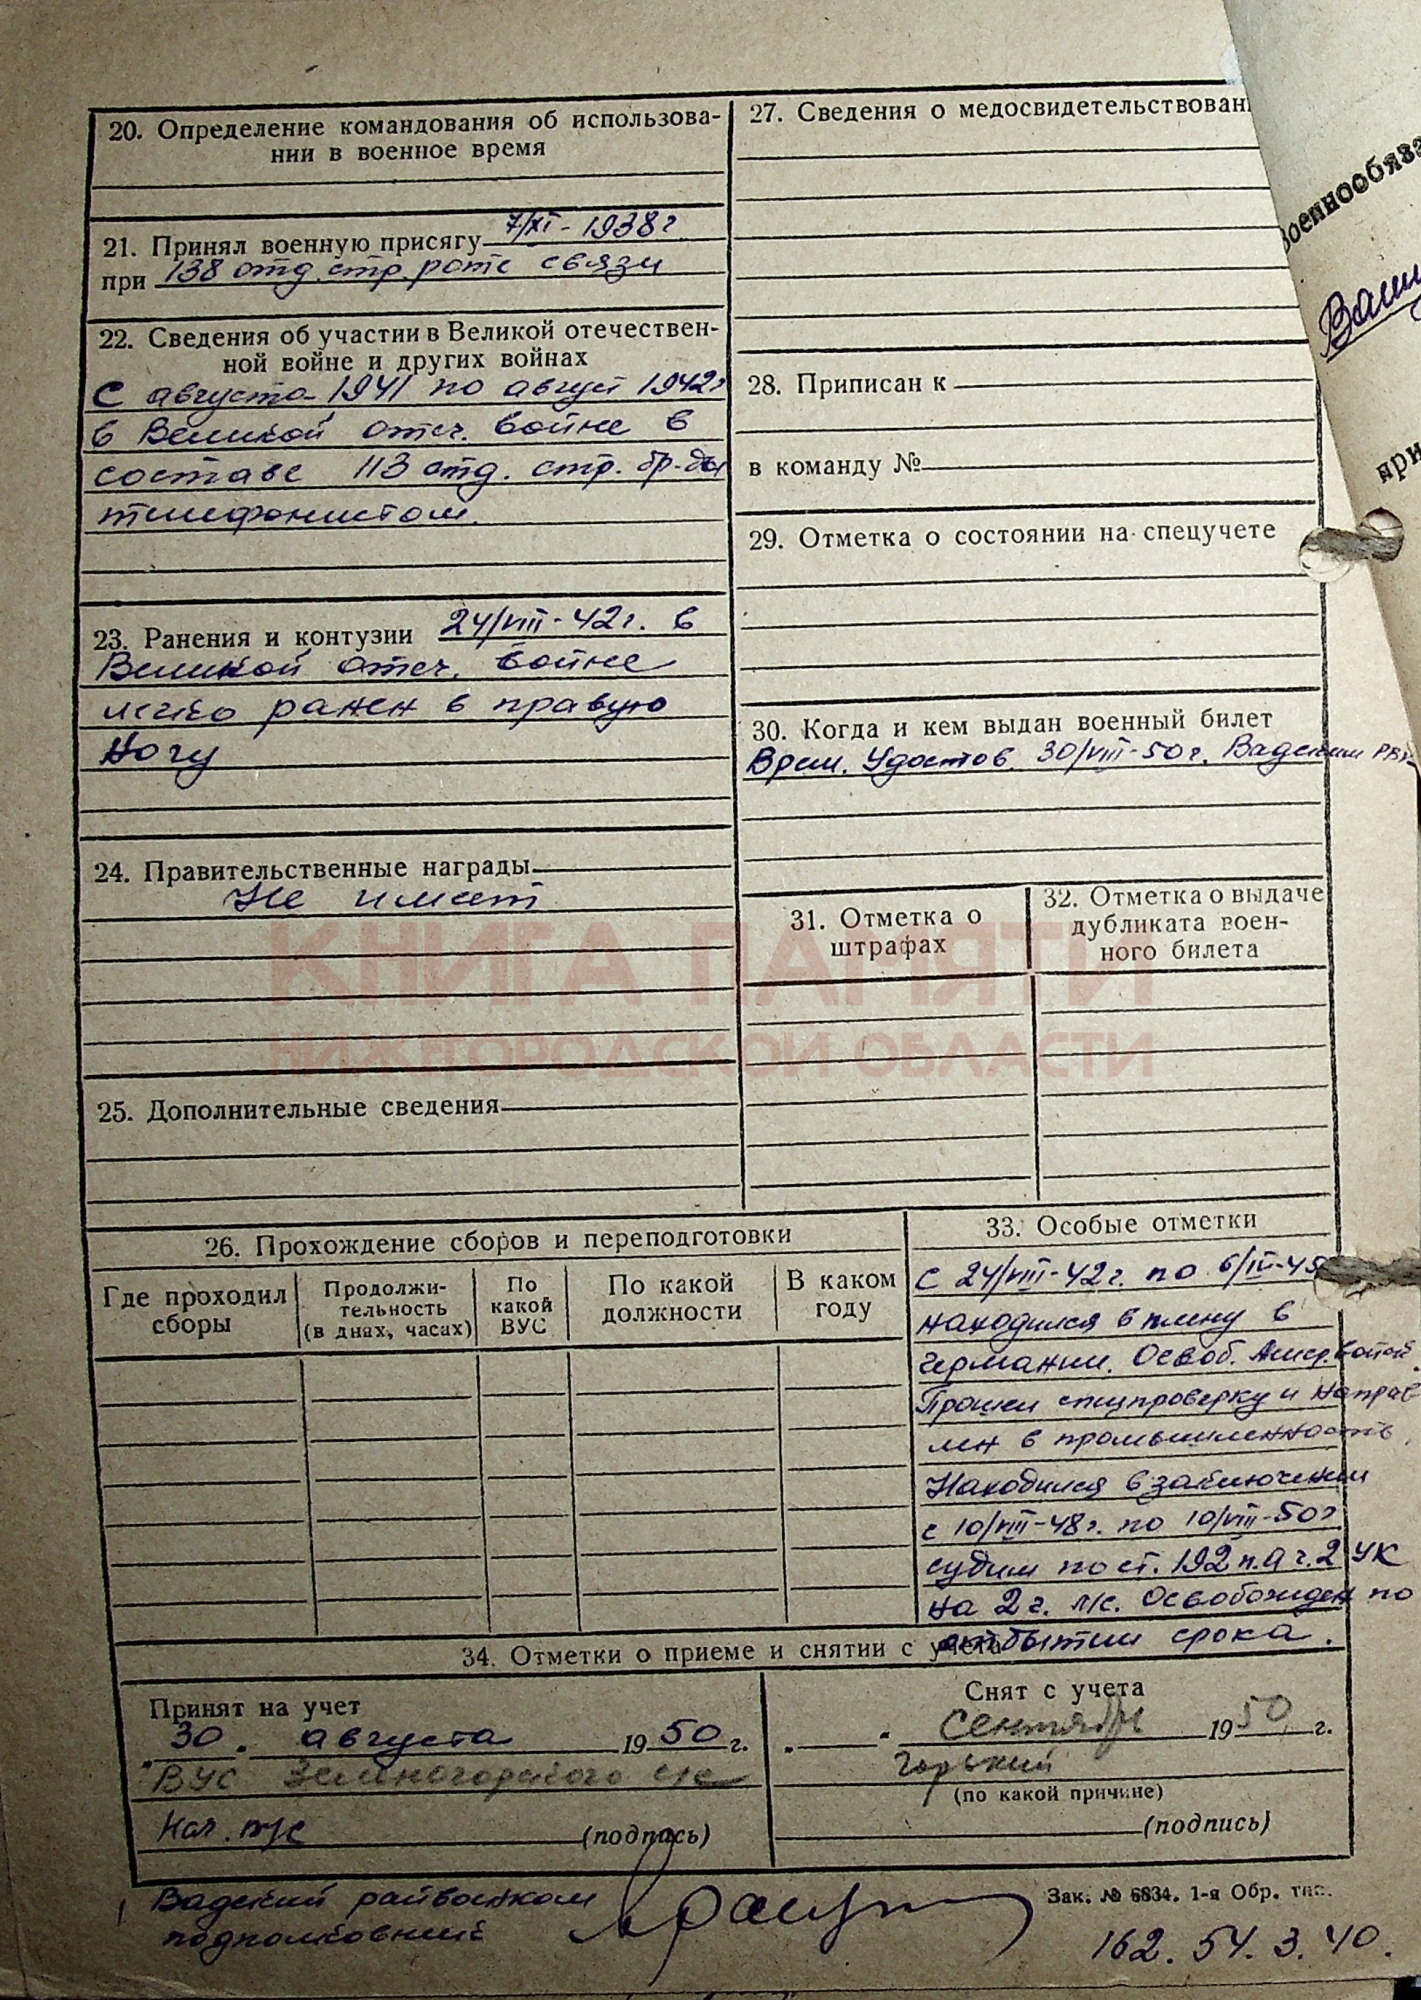 20. Определение командования об использова-
нии в военное время
21. Принял военную присягу 7/XI-1938г
при 138 отд. стр. роте связи
22. Сведения об участии в Великой отечествен-
ной войне и других войнах
С августа 1941 по август 1942г
в Великой отеч. войне в
составе 113 отд. стр. бр-ды
телефонистом.
23. Ранения и контузии 24/VIII-42г. в
Великой отеч. войне
легко ранен в правую
ногу
24. Правительственные награды
Не имеет
25. Дополнительные сведения
27. Сведения о медосвидетельствован
28. Приписан к
в команду №
29. Отметка о состоянии на спецучете
30. Когда и кем выдан военный билет
Врем. Удостов. 30/VIII-50г. Вадским РВК
31. Отметка о
штрафах
32. Отметка о выдаче
дубликата воен-
ного билета
КНИГА ПАМЯТИ
НИЖЕГОРОДСКОЙ ОБЛАСТИ
26. Прохождение сборов и переподготовки
Где проходил
сборы
Продолжи-
тельность
(в днах, часах)
По
какой
ВУС
По какой
должности
В каком
году
33. Особые отметки
С 24/VIII-42г. по 6/IV-45
находился в плену в
Германии. Освоб. Амер. войск.
Прошел спецпроверку и направ
лен в промышленность.
Находился в заключении
с 10/VIII-48г. по 10/VIII-50г
судим по ст. 192 п.а ч.2 УК
на 2 г. л/с. Освобожден по
отбытии срока.
34. Отметки о приеме и снятии с учета
Принят на учет
"30" августа 1950 г.
ВУС с/с
Нач. (подпись)
Снят с учета
" " сентябрь 1950 г.
Горький
(по какой причине)
(подпись)
Вадский райвоенком
подполковник
Зак. № 6834. 1-я Обр. тип.
162. 54. 3. 40.
военнообяза
Ваш
при